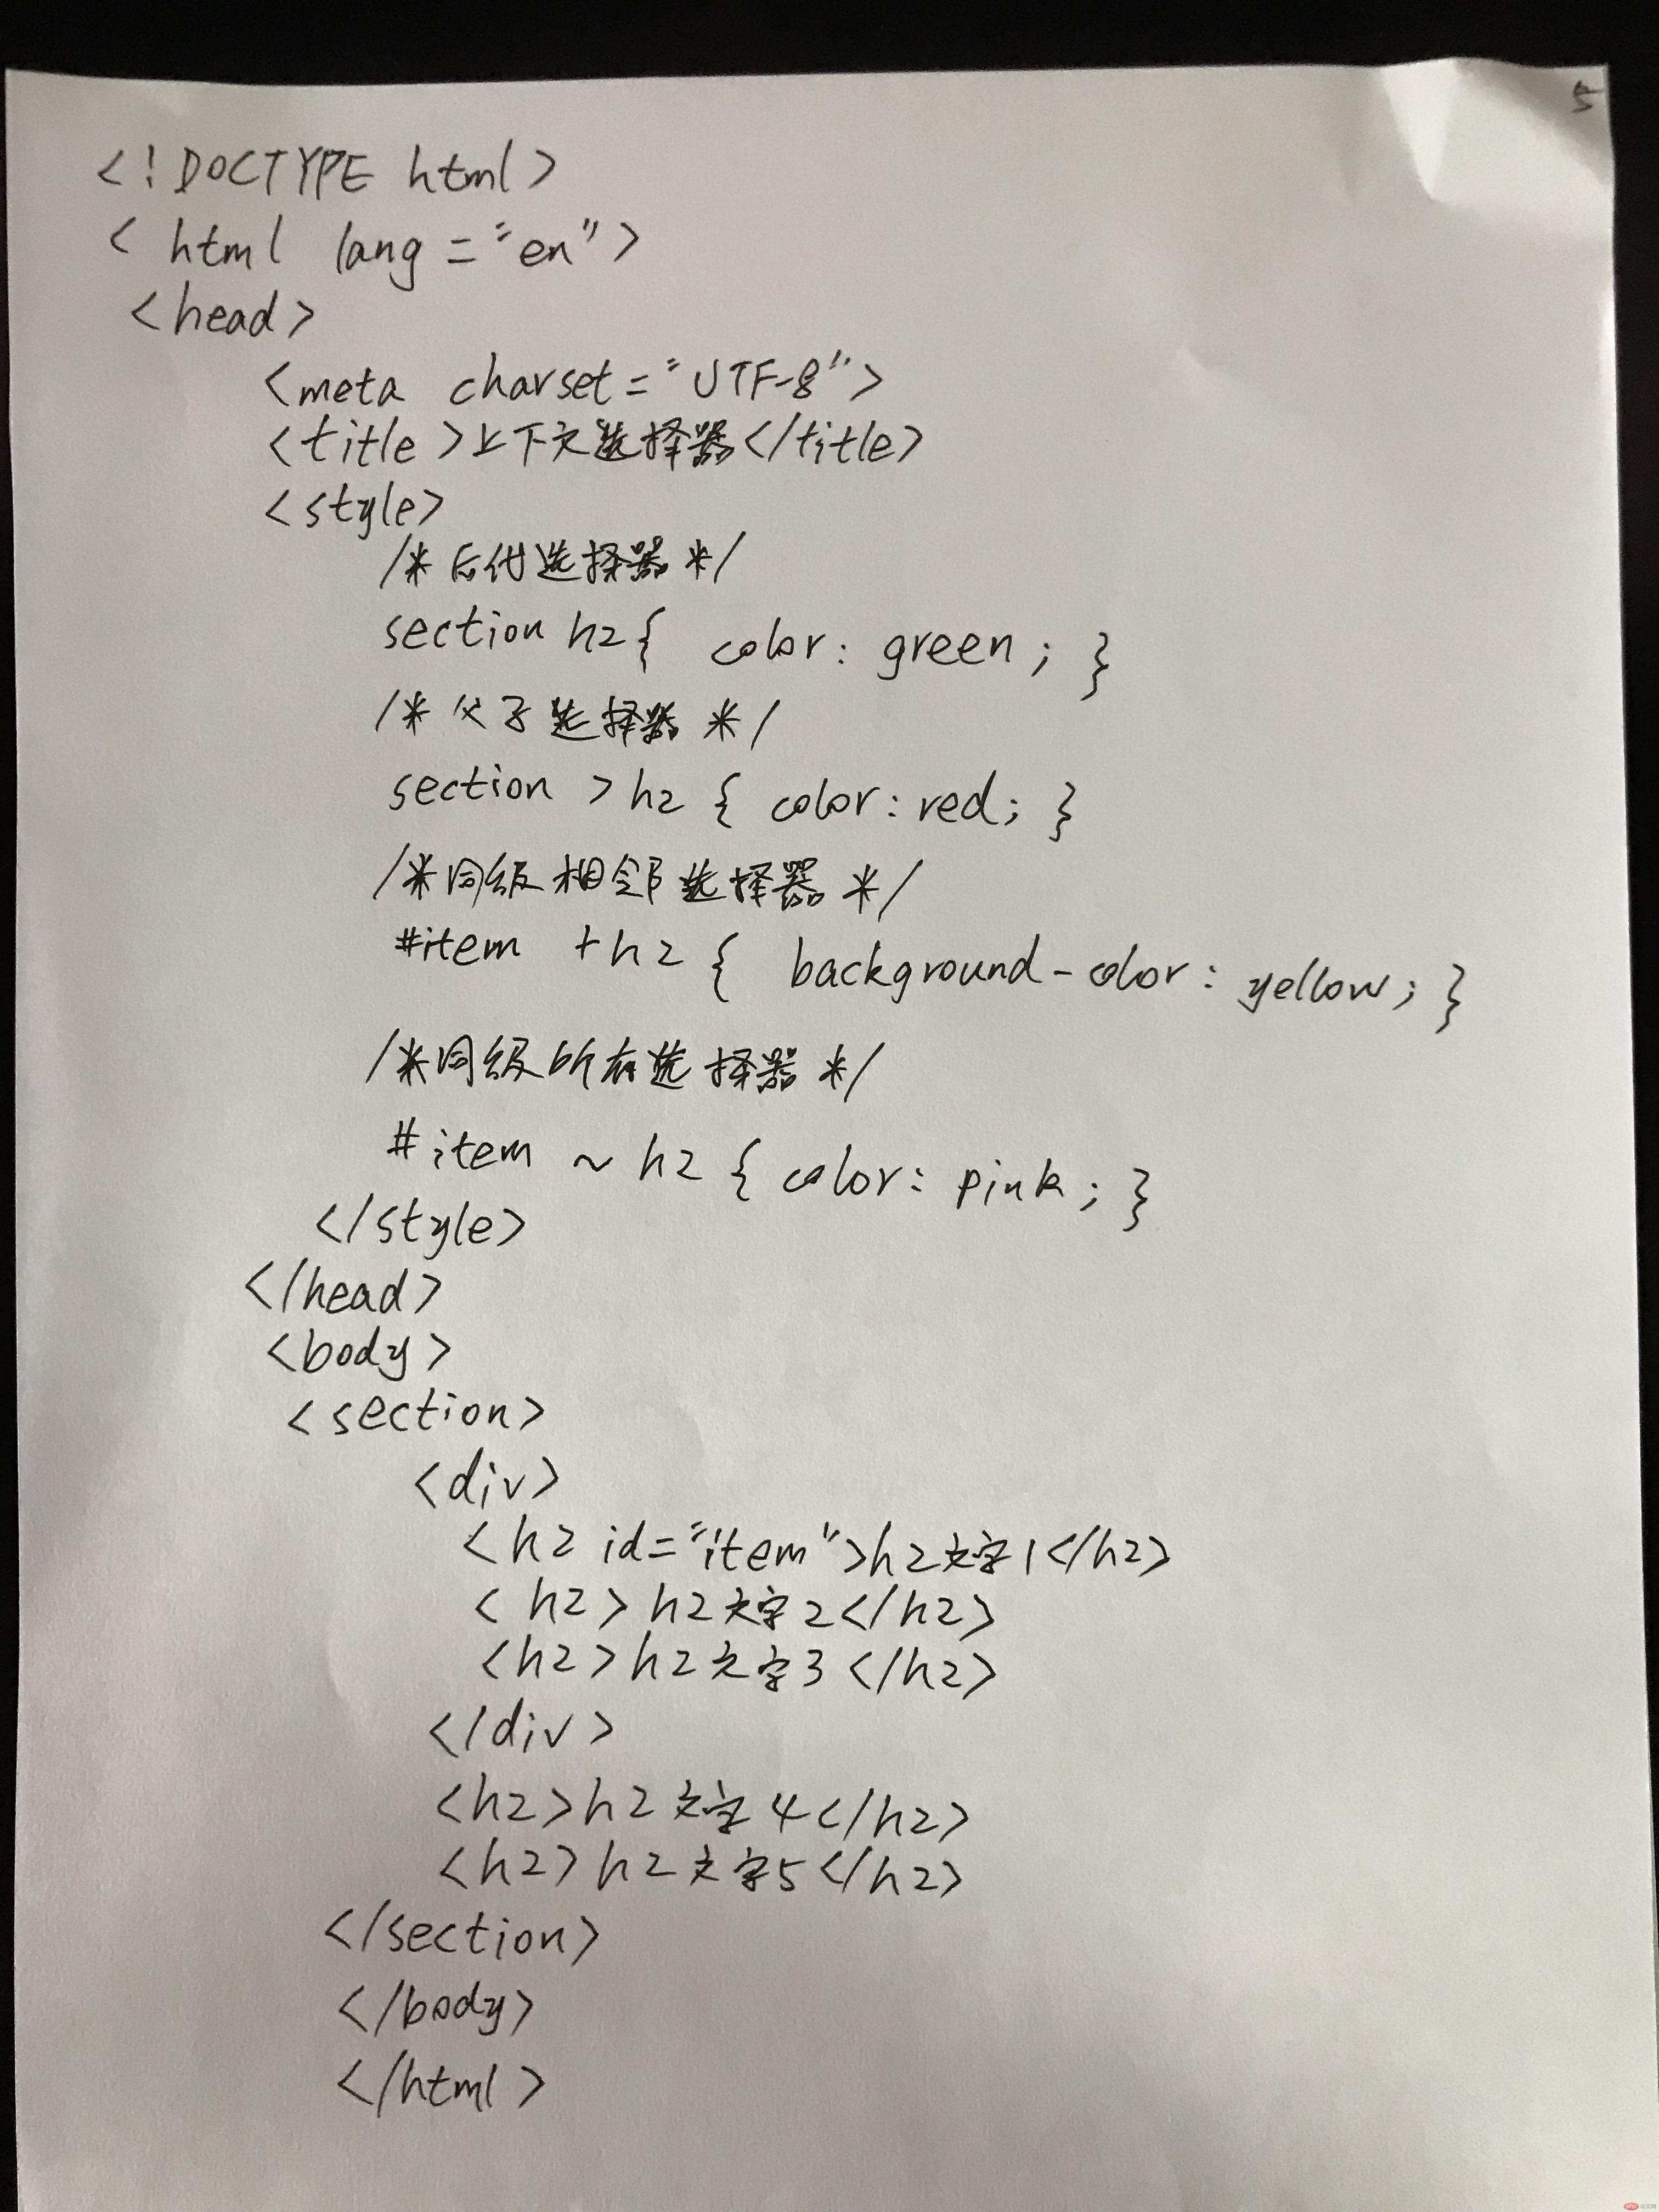 5
<!DOCTYPE html>
< html lang="en">
<head>
<meta charset="UTF-8">
<title>上下文选择器</title>
<style>
/*后代选择器*/
section h2{ color: green; }
/*父子选择器*/
section >h2 { color: red; }
/*同级相邻选择器*/
#item +h2 { background-color: yellow; }
/*同级所有选择器*/
#item ~ h2 { color: pink; }
</style>
</head>
<body>
<section>
<div>
<h2 id="item">h2文字1</h2>
<h2>h2文字2</h2>
<h2>h2文字3</h2>
</div>
<h2>h2文字4</h2>
<h2>h2文字5</h2>
</section>
</body>
</html>
php中文网